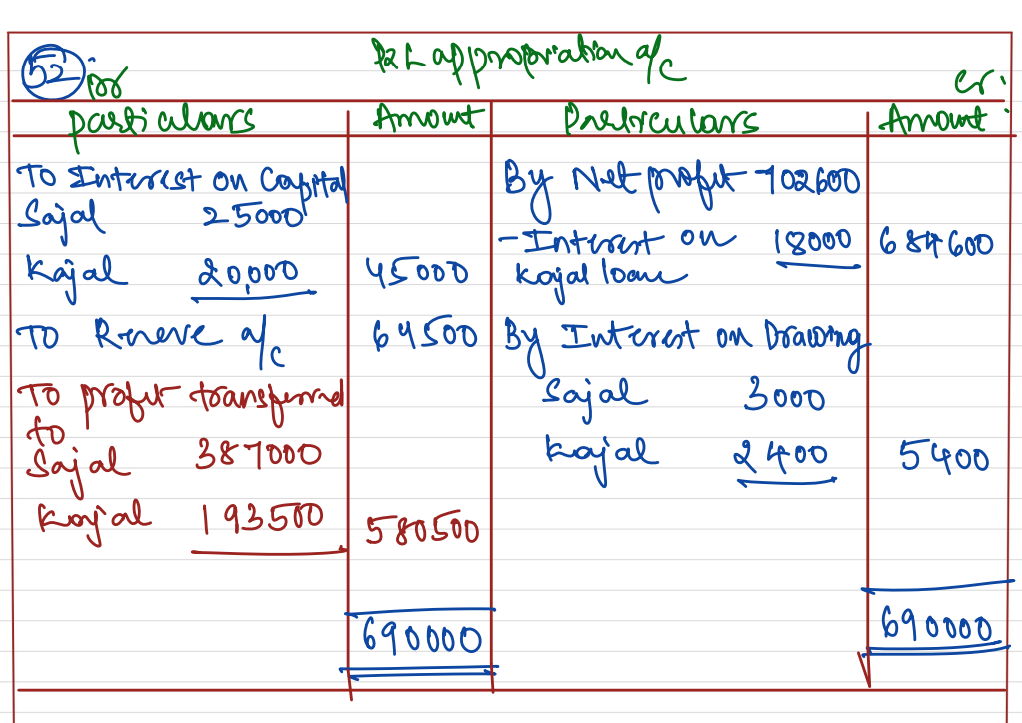 52 Dr P&L appropriation a/c Cr.
Particulars Amount Particulars Amount
To Interest on Capital By Net profit 702600
Sajal 25000
-Interest on 18000 684600
Kajal 20,000 45000 Kajal loan
To Reserve a/c 64500 By Interest on Drawing
To profit transferred Sajal 3000
to
Sajal 387000 Kajal 2400 5400
Kajal 193500 580500
690000 690000